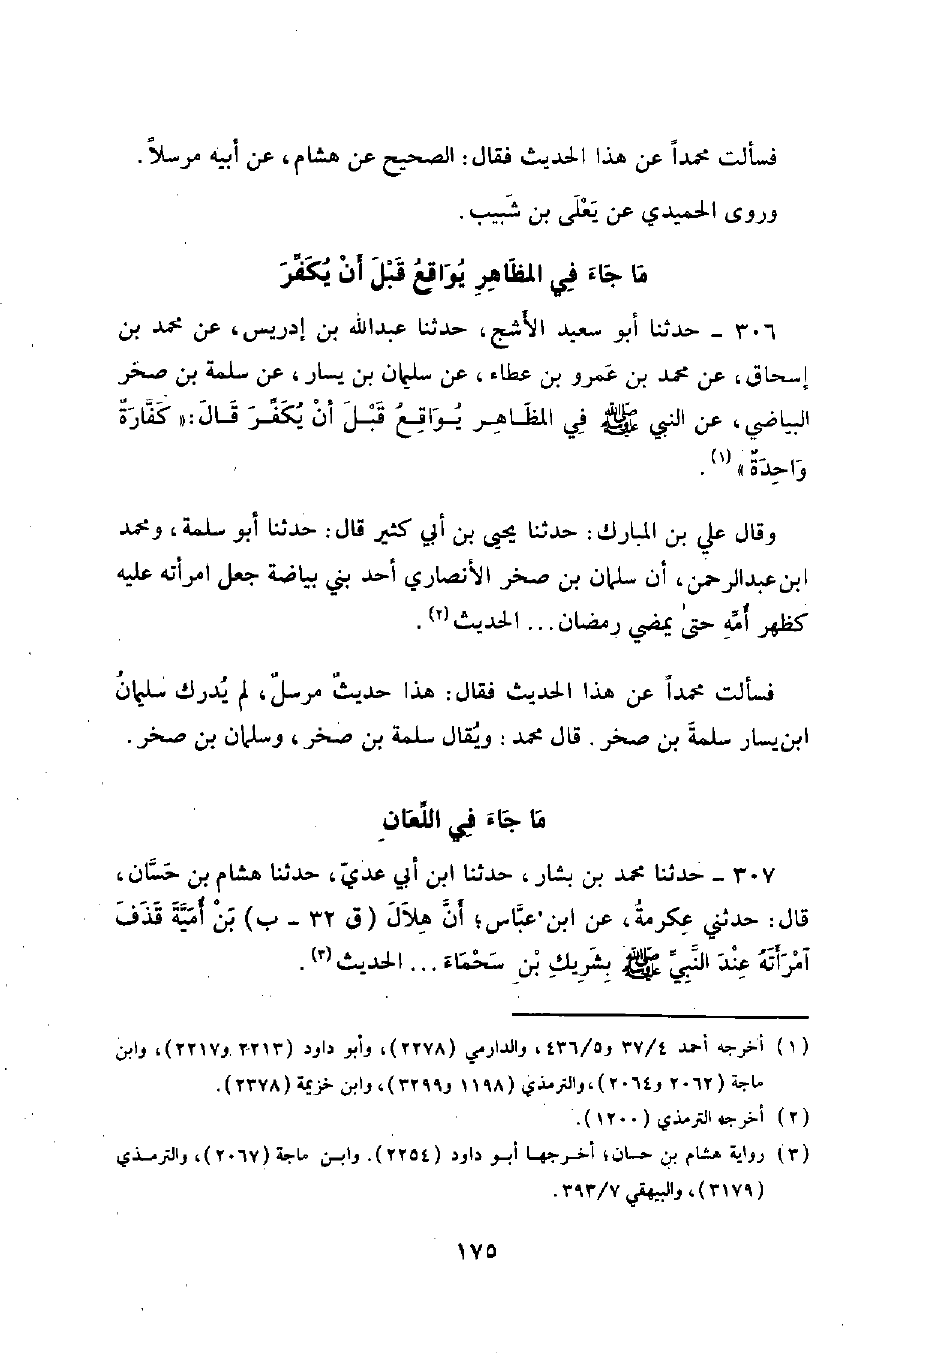 فسألت محمداً عن هذا الحديث فقال: الصحيح عن هشام، عن أبيه مرسلاً.
وروى الحميدي عن يَعْلَى بن شَبِيب.
مَا جَاءَ فِي المظَاهِرِ يُوَاقِعُ قَبْلَ أَنْ يُكَفِّرَ
٣٠٦ ـ حدثنا أبو سعيد الأشج، حدثنا عبدالله بن إدريس، عن محمد بن
إسحاق، عن محمد بن عَمرو بن عطاء، عن سليمان بن يسار، عن سلمة بن صخر
البياضي، عن النبي ﷺ في المظَاهِر يُوَاقِعُ قَبْلَ أَنْ يُكَفِّرَ قَالَ: «كَفَّارَةٌ
وَاحِدَةٌ» (١).
وقال علي بن المبارك: حدثنا يحيى بن أبي كثير قال: حدثنا أبو سلمة، ومحمد
ابن عبدالرحمن، أن سلمان بن صخر الأنصاري أحد بني بياضة جعل امرأته عليه
كظهر أُمِّهِ حتىٰ يمضي رمضان... الحديث (٢).
فسألت محمداً عن هذا الحديث فقال: هذا حديثٌ مرسلٌ، لم يُدرك سليمانُ
ابن يسار سلمةَ بن صخر. قال محمد: ويُقال سلمة بن صخر، وسلمان بن صخر.
مَا جَاءَ فِي اللِّعَانِ
٣٠٧ ـ حدثنا محمد بن بشار، حدثنا ابن أبي عديّ، حدثنا هشام بن حَسَّان،
قال: حدثني عِكرمةُ، عن ابن عبَّاس؛ أَنَّ هِلَالَ (ق ٣٢ ـ ب) بَنْ أُمَيَّةَ قَذَفَ
آمْرَأَتَهُ عِنْدَ النَّبِيِّ ﷺ بِشَرِيكِ بْنِ سَحْمَاءَ... الحديث (٣).
(١) أخرجه أحمد ٣٧/٤ و٤٣٦/٥، والدارمي (٢٢٧٨)، وأبو داود (٢٢١٣ و٢٢١٧)، وابن
ماجة (٢٠٦٢ و٢٠٦٤)، والترمذي (١١٩٨ و٣٢٩٩)، وابن خزيمة (٢٣٧٨).
(٢) أخرجه الترمذي (١٢٠٠).
(٣) رواية هشام بن حسان؛ أخرجها أبو داود (٢٢٥٤). وابن ماجة (٢٠٦٧)، والترمذي
(٣١٧٩)، والبيهقي ٣٩٣/٧.
١٧٥